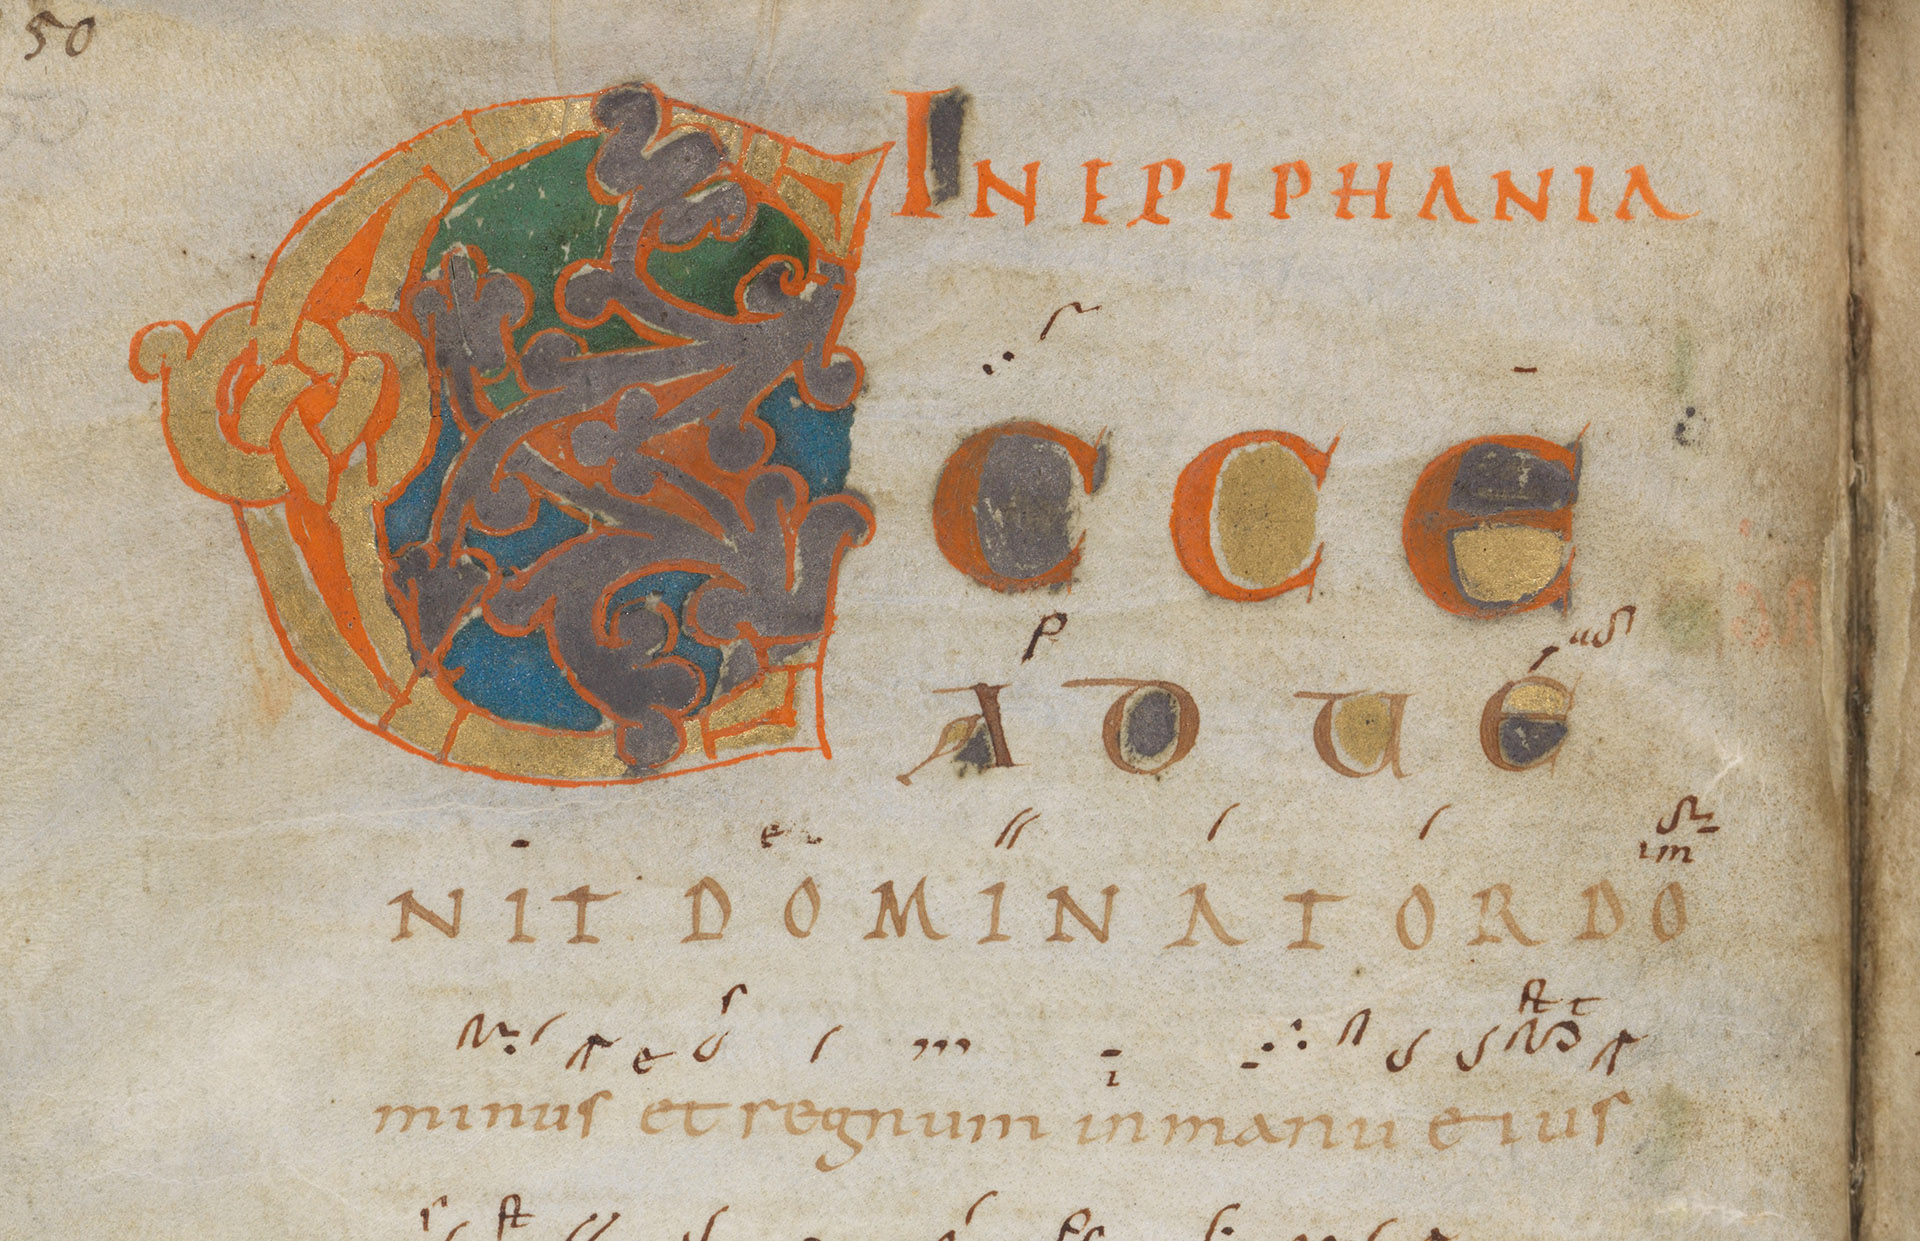 50
IN EPIPHANIA
ECCE
ADUE
NIT DOMINATOR DO
minus et regnum in manu eius